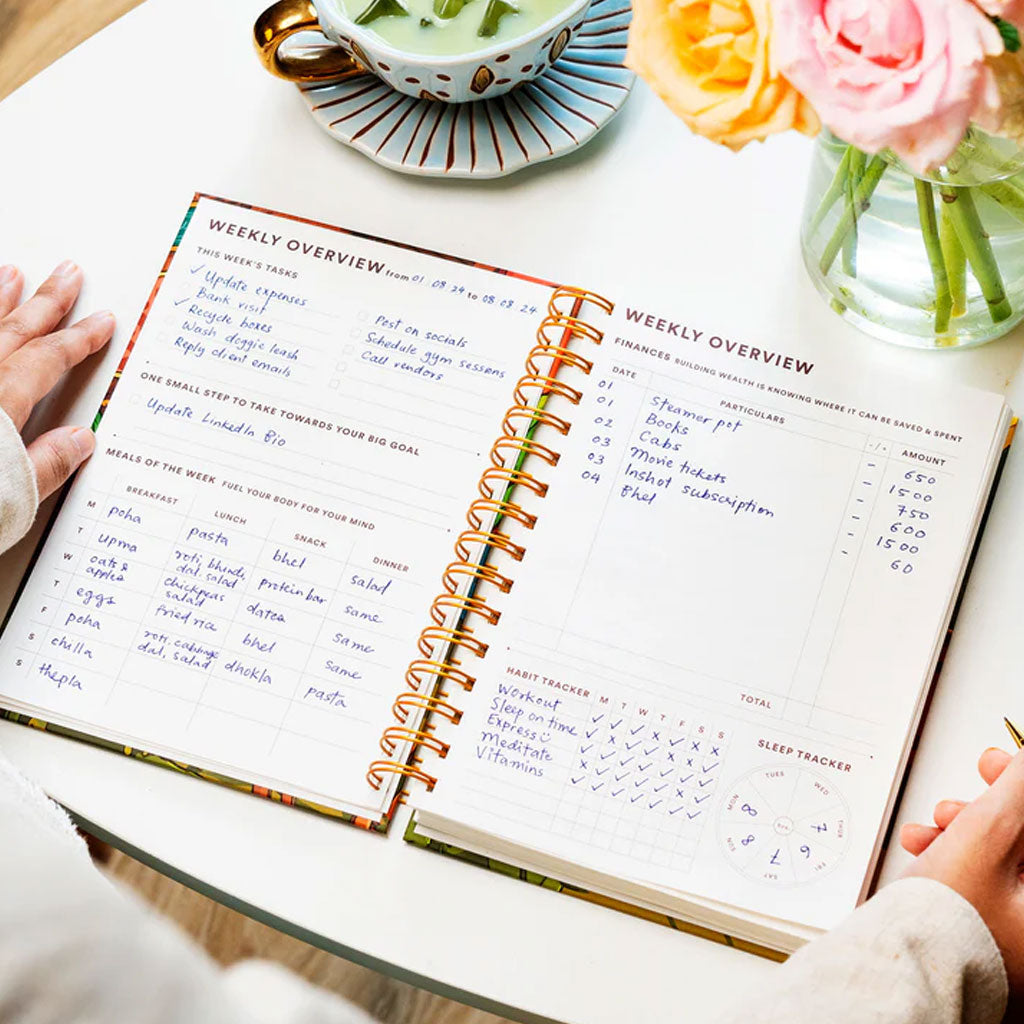 WEEKLY OVERVIEW from 01 08 24 to 08 08 24
THIS WEEK'S TASKS
✓ Update expenses
Bank visit
✓ Recycle boxes
Wash doggie leash
Reply client emails
Post on socials
Schedule gym sessions
Call vendors
ONE SMALL STEP TO TAKE TOWARDS YOUR BIG GOAL
Update LinkedIn Bio
MEALS OF THE WEEK FUEL YOUR BODY FOR YOUR MIND
BREAKFAST LUNCH SNACK DINNER
M poha pasta bhel salad
T Upma roti, bhindi, dal, salad protein bar same
W oats & apples chickpeas salad dates same
T eggs fried rice bhel same
F poha roti, cabbage dal, salad dhokla pasta
S chilla
S thepla
WEEKLY OVERVIEW
FINANCES BUILDING WEALTH IS KNOWING WHERE IT CAN BE SAVED & SPENT
DATE PARTICULARS -/+ AMOUNT
01 Steamer pot - 650
01 Books - 1500
02 Cabs - 750
03 Movie tickets - 600
03 Inshot subscription - 1500
04 Bhel - 60
TOTAL
HABIT TRACKER M T W T F S S
Workout
Sleep on time
Express
Meditate
Vitamins
SLEEP TRACKER
MON TUES WED THUR FRI SAT SUN
8
7
6
7
8